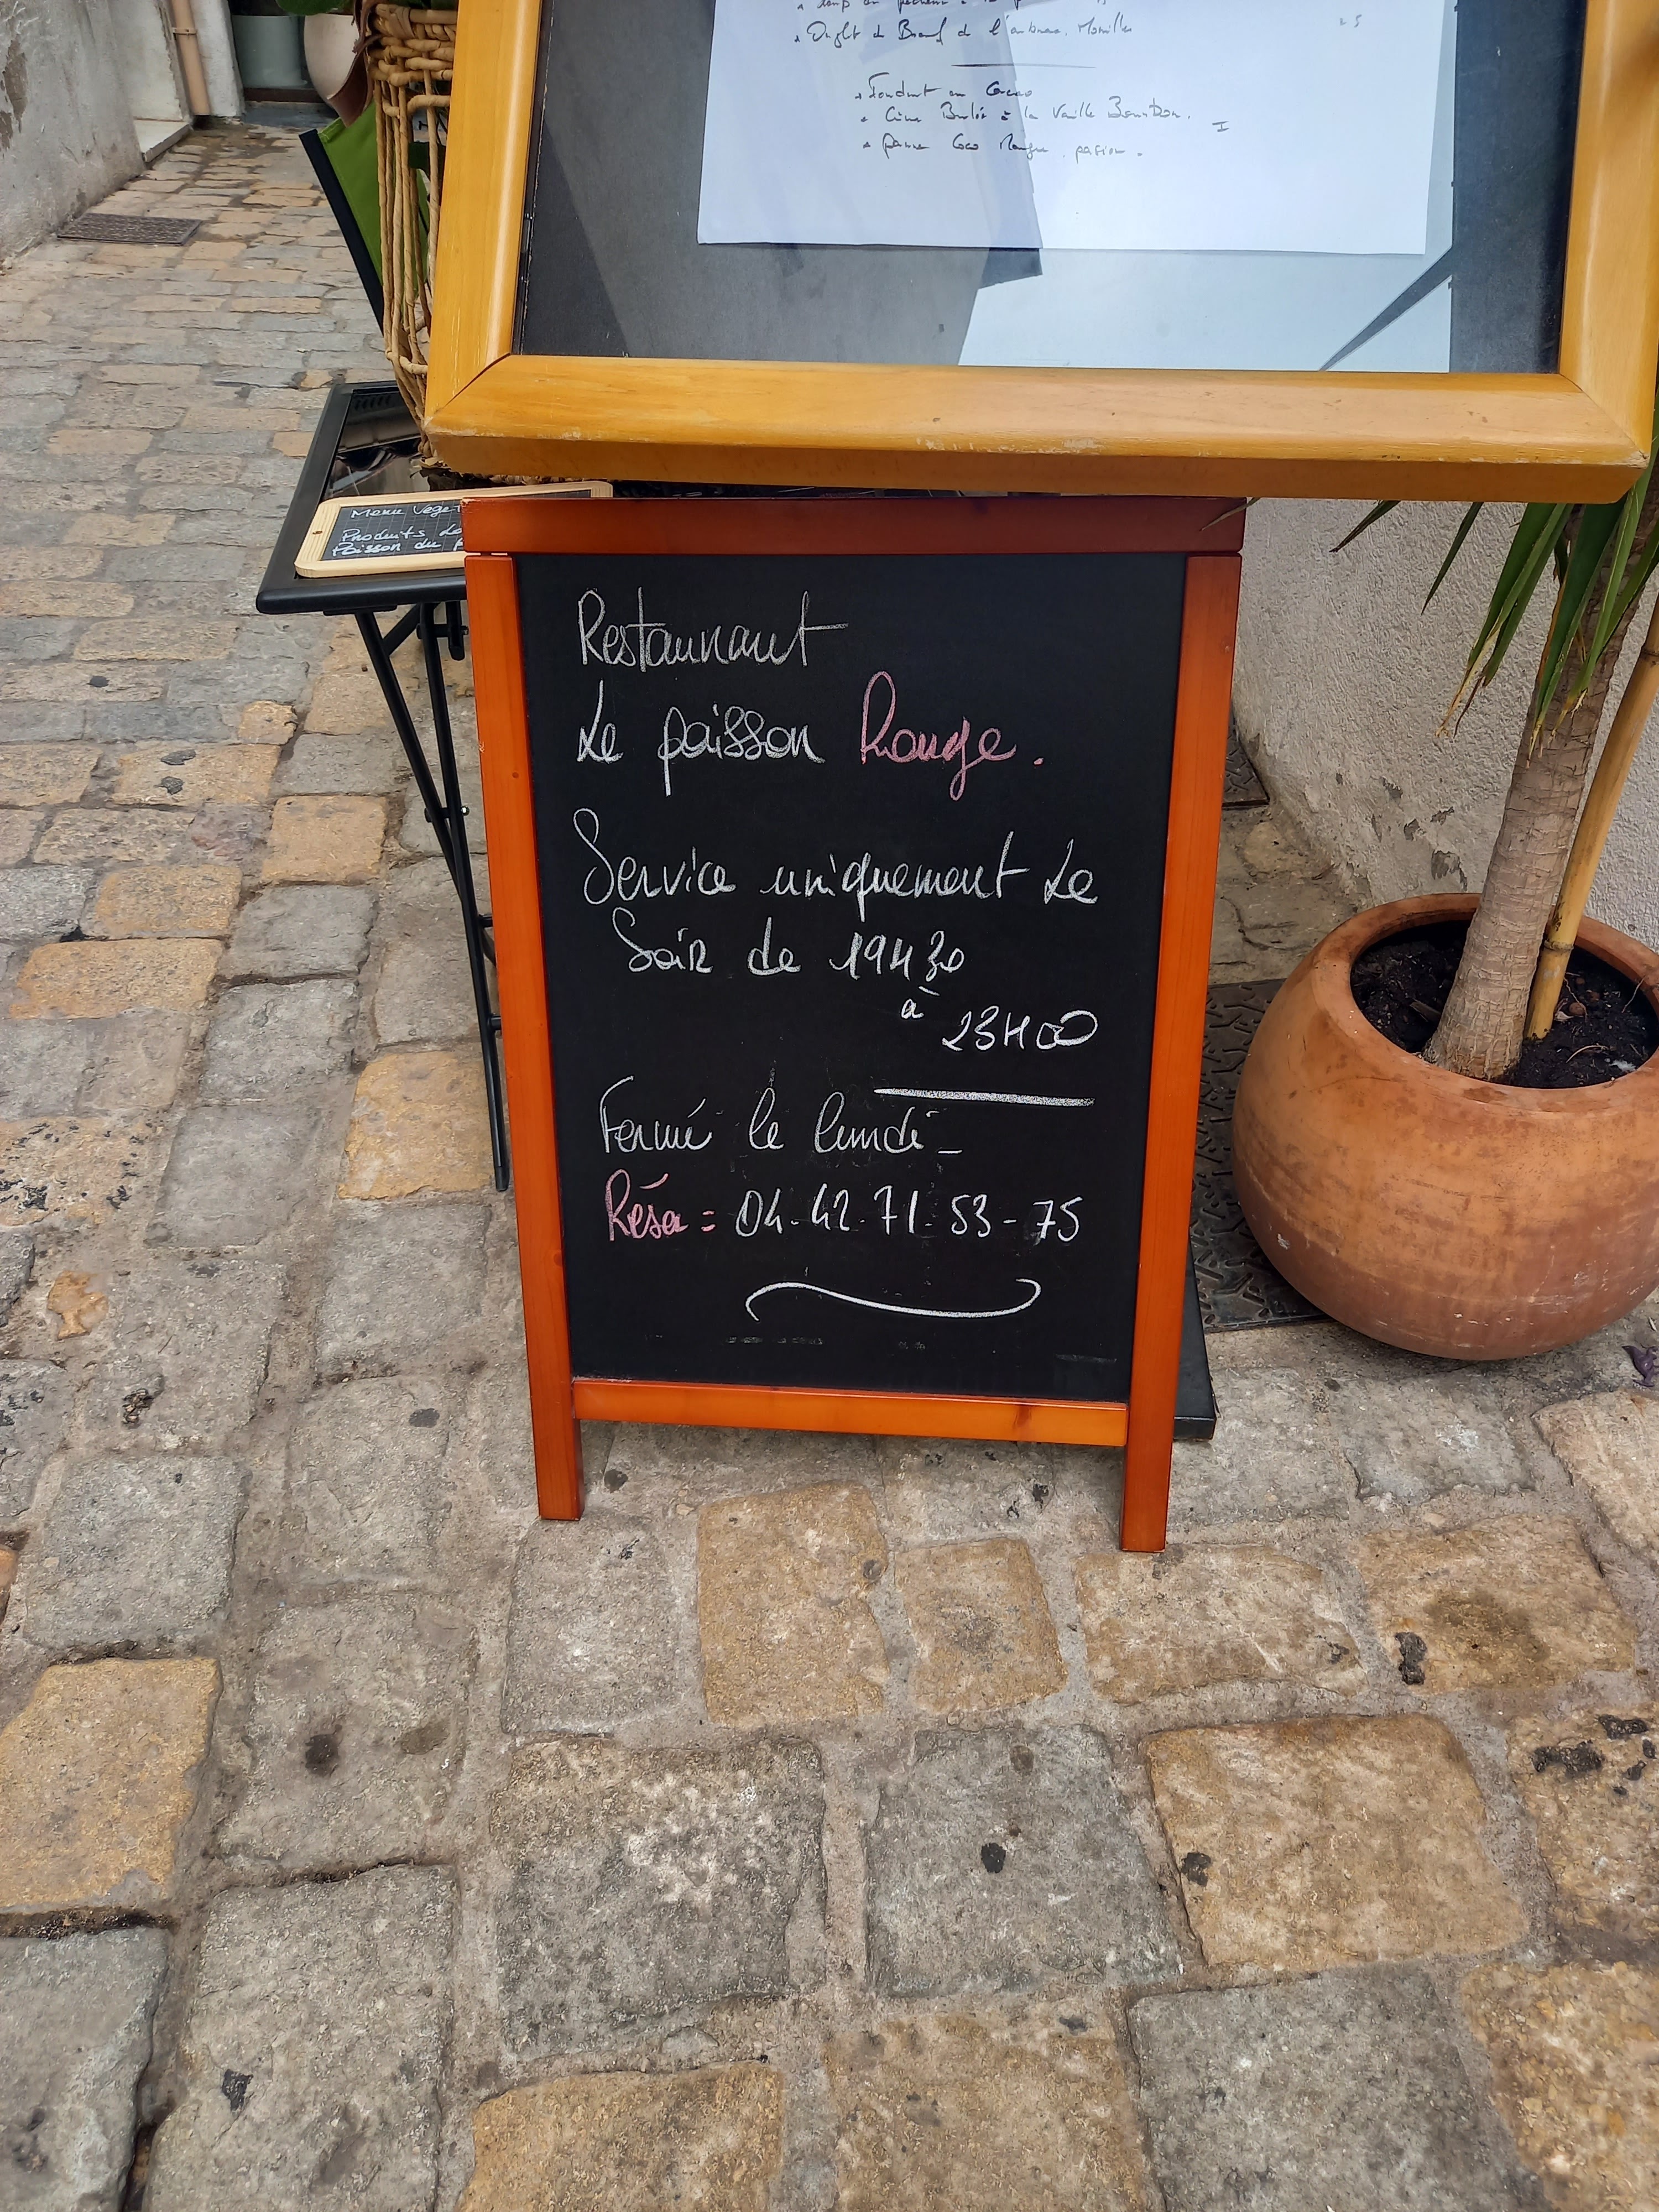 Onglet de Boeuf de l'aubrac. Morilles 25
Fondant au Cacao
Crème Brulée à la Vanille Bourbon.
panna Coco Mangue. pasion.
Menu Vege
Produits
Poisson du
Restaurant
Le poisson Rouge.
Service uniquement Le
Soir de 19H30
à 23H00
Fermé le lundi_
Résa = 04.42.71.53-75